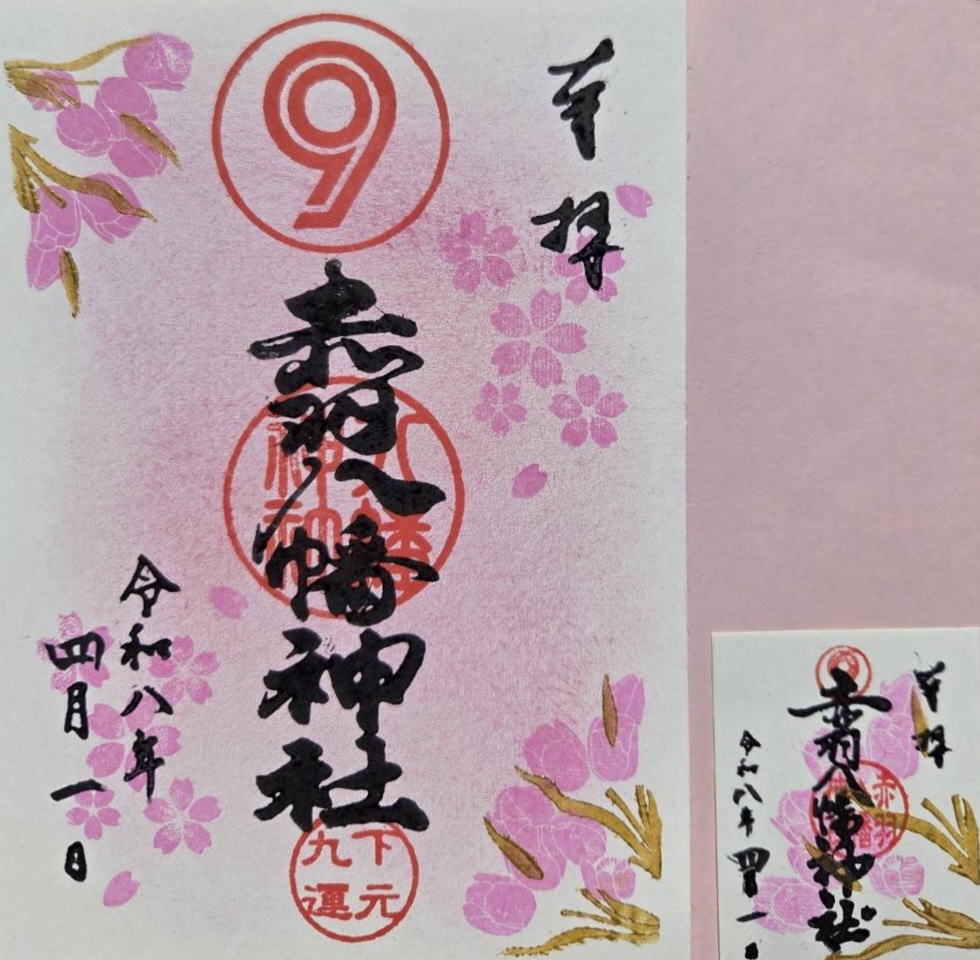 奉拝
9
赤羽八幡神社
下元
九運
令和八年
四月一日
奉拝
赤羽八幡神社
赤羽
令和八年
四月一日